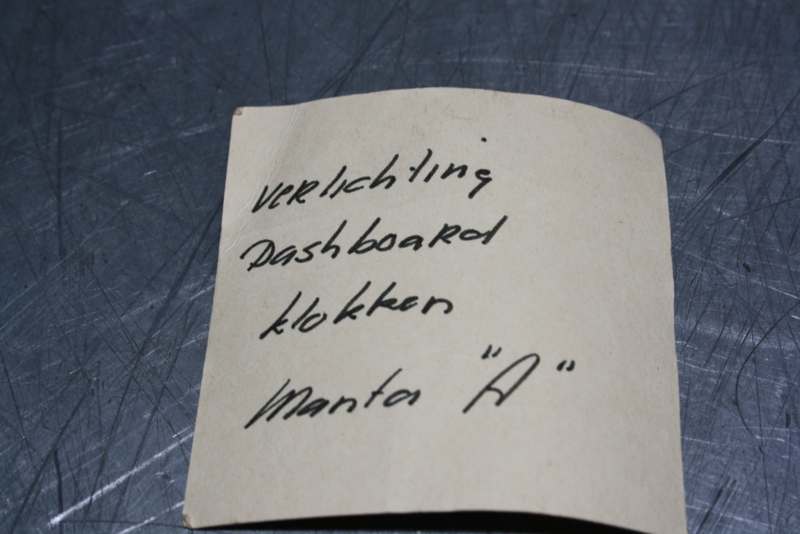 verlichting
Dashboard
klokken
Manta "A"